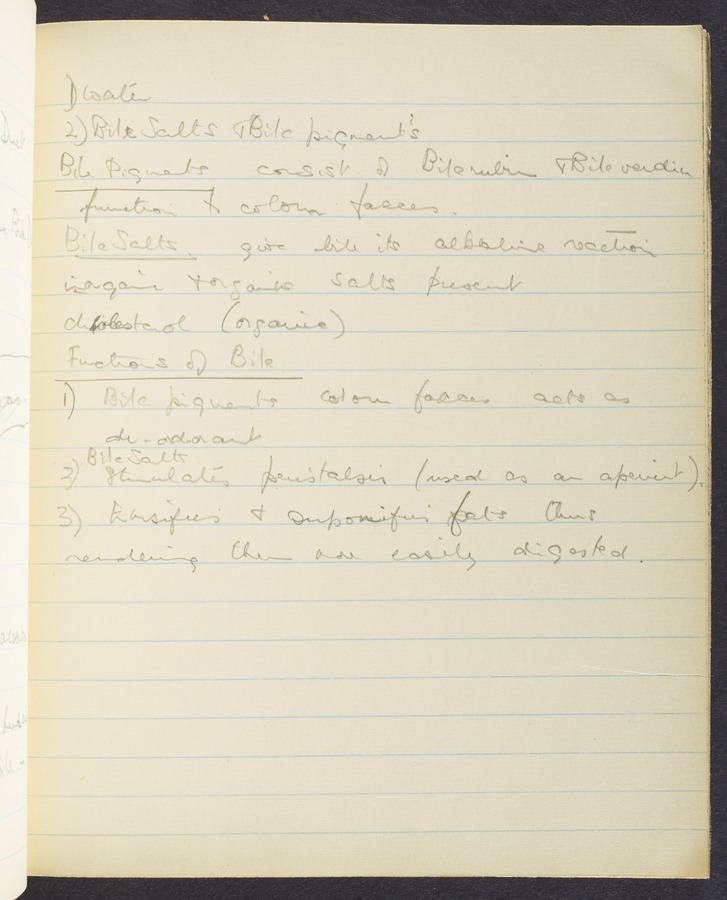 1) Water
2) Bile Salts & Bile pigment's
Bile Pigments consist of Bilerubin & Bile verdin
function to colour faeces.
Bile Salts. give bile its alkaline reaction
inorganic & organic salts present
cholesterol (organic)
Functions of Bile
1) Bile pigments colour faeces acts as
de-odorant
Bile Salts
2) Stimulates peristalsis (used as an aperient).
3) Emulsifies & saponifies fats thus
rendering them more easily digested.